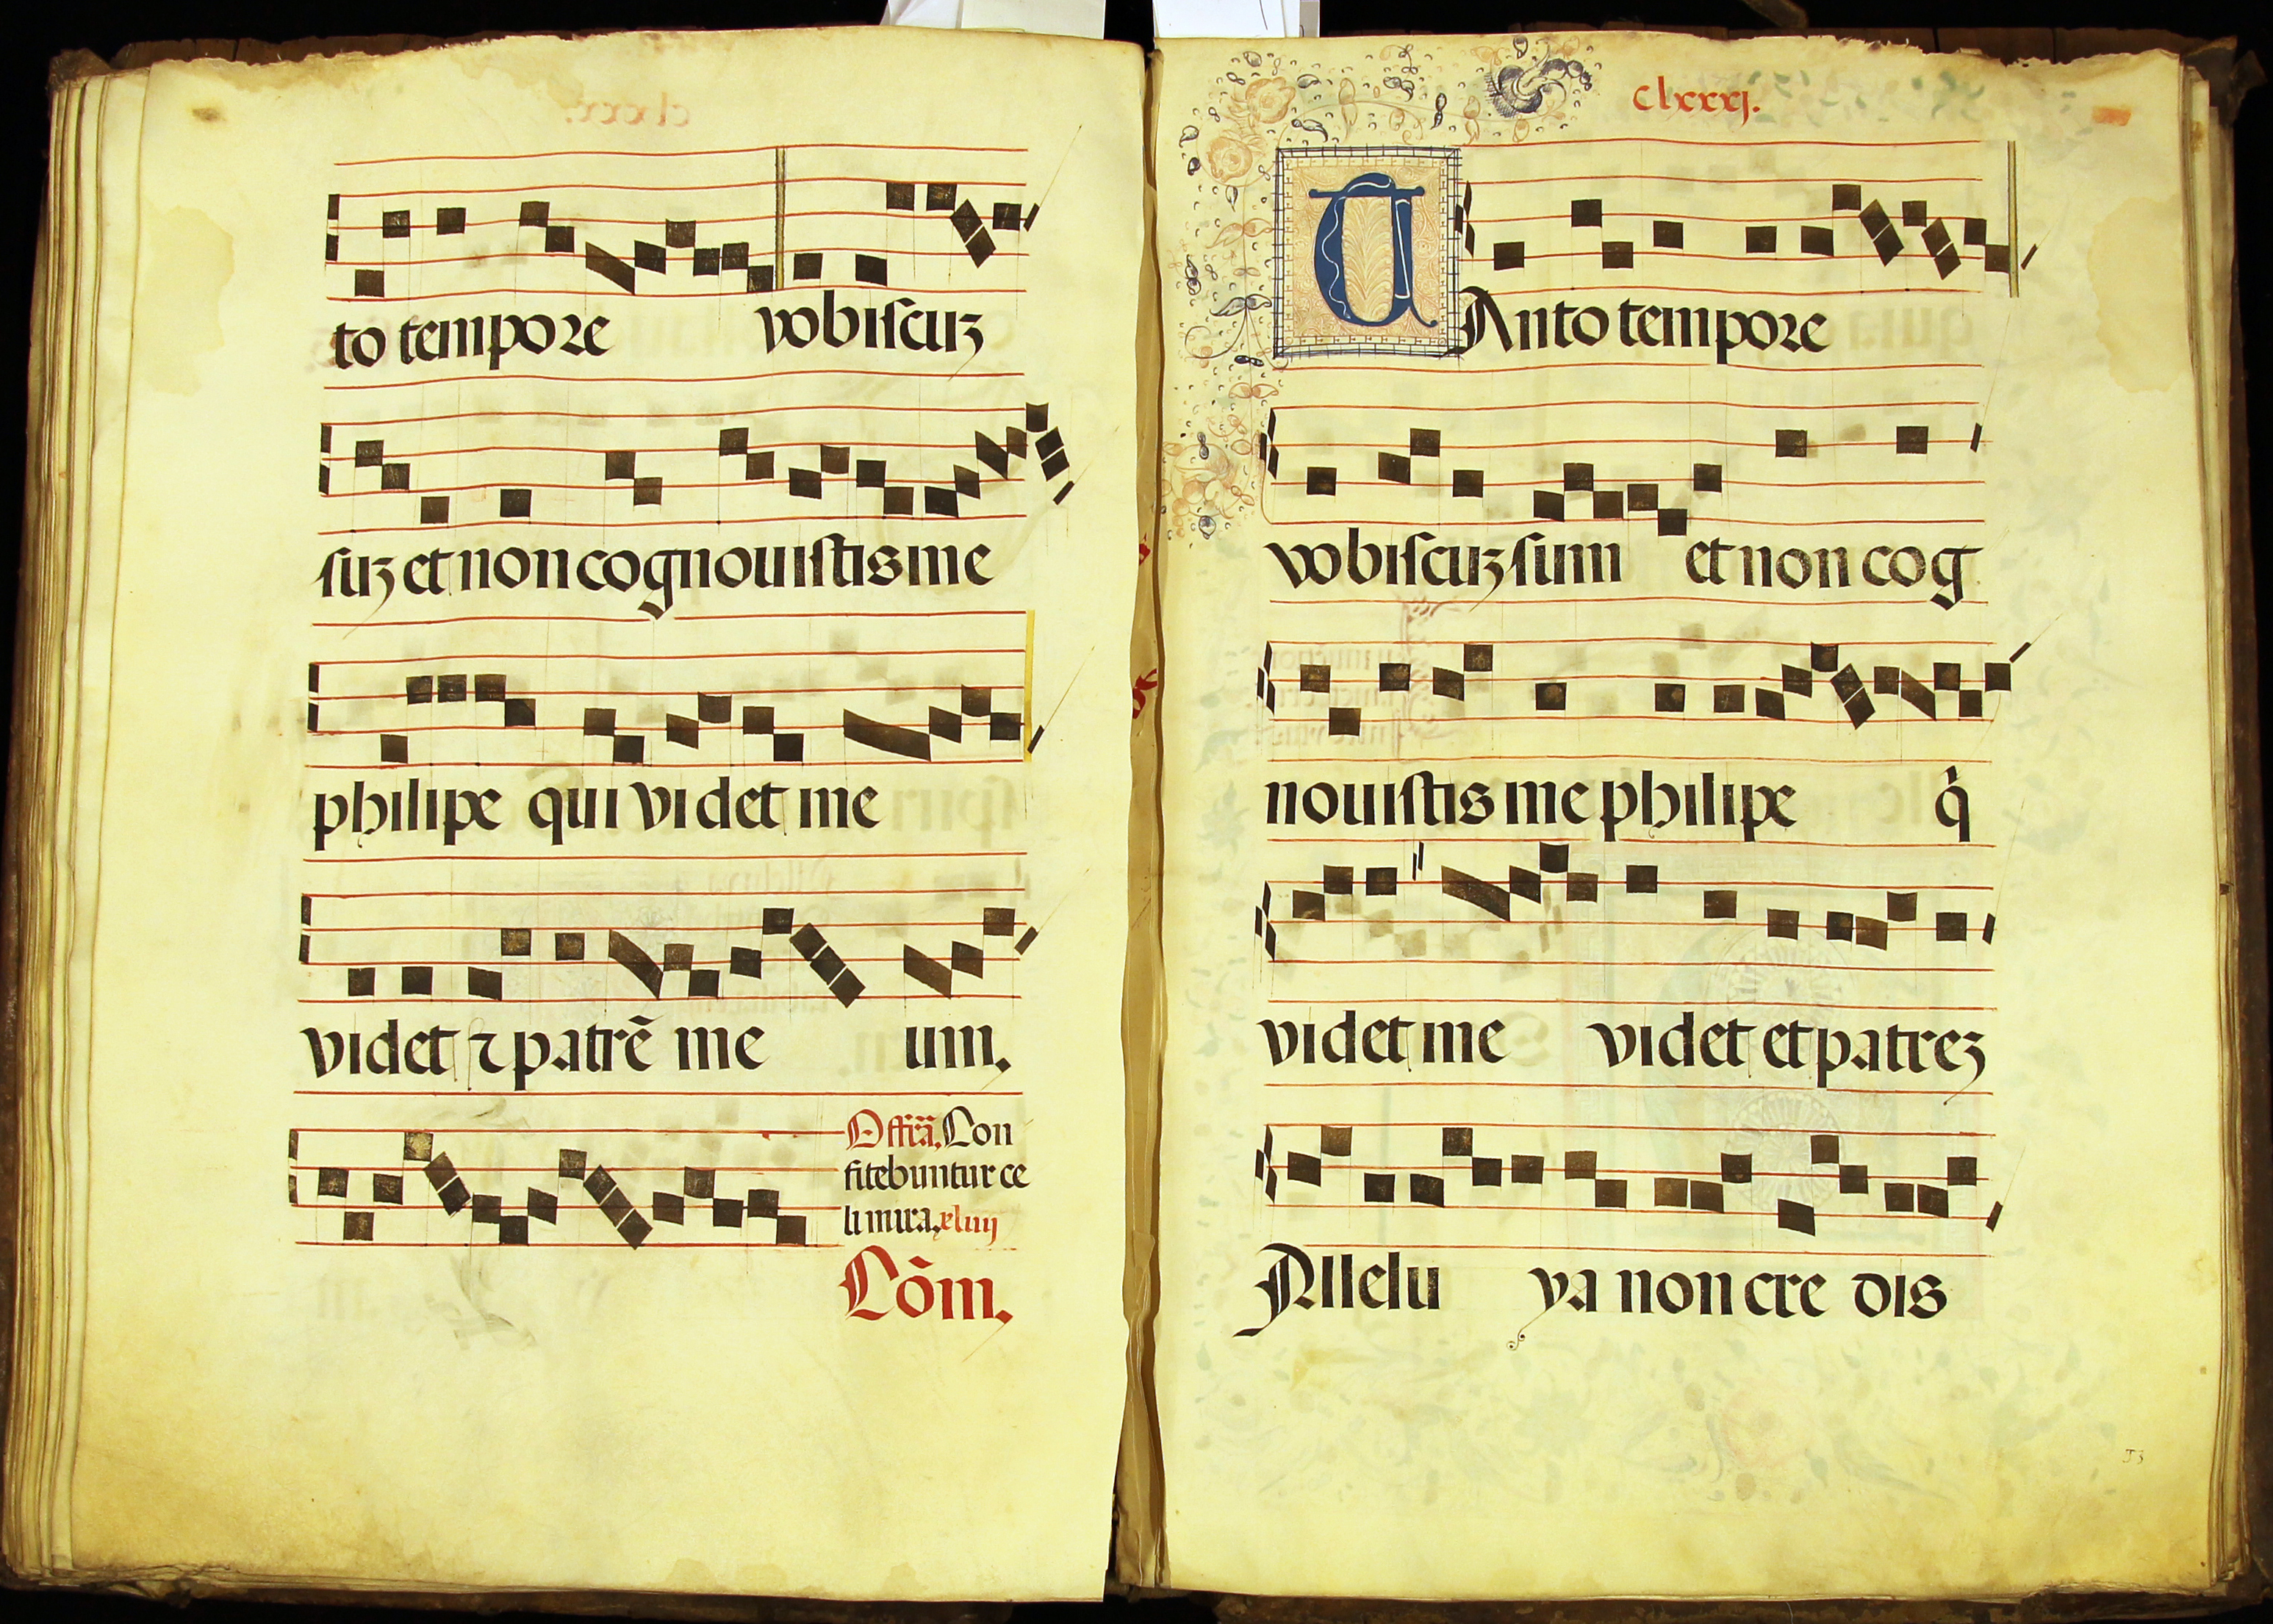 to tempore vobiscuz
suz et non cognouistis me
philipe qui videt me
videt ⁊ patrē me um.
Offr̄a. Con
fitebuntur ce
li mira. xliiij
Cōm.
clxxxj.
TAnto tempore
vobiscuz sum et non cog
nouistis me philipe q̇
videt me videt et patrez
Allelu ya non cre dis
53